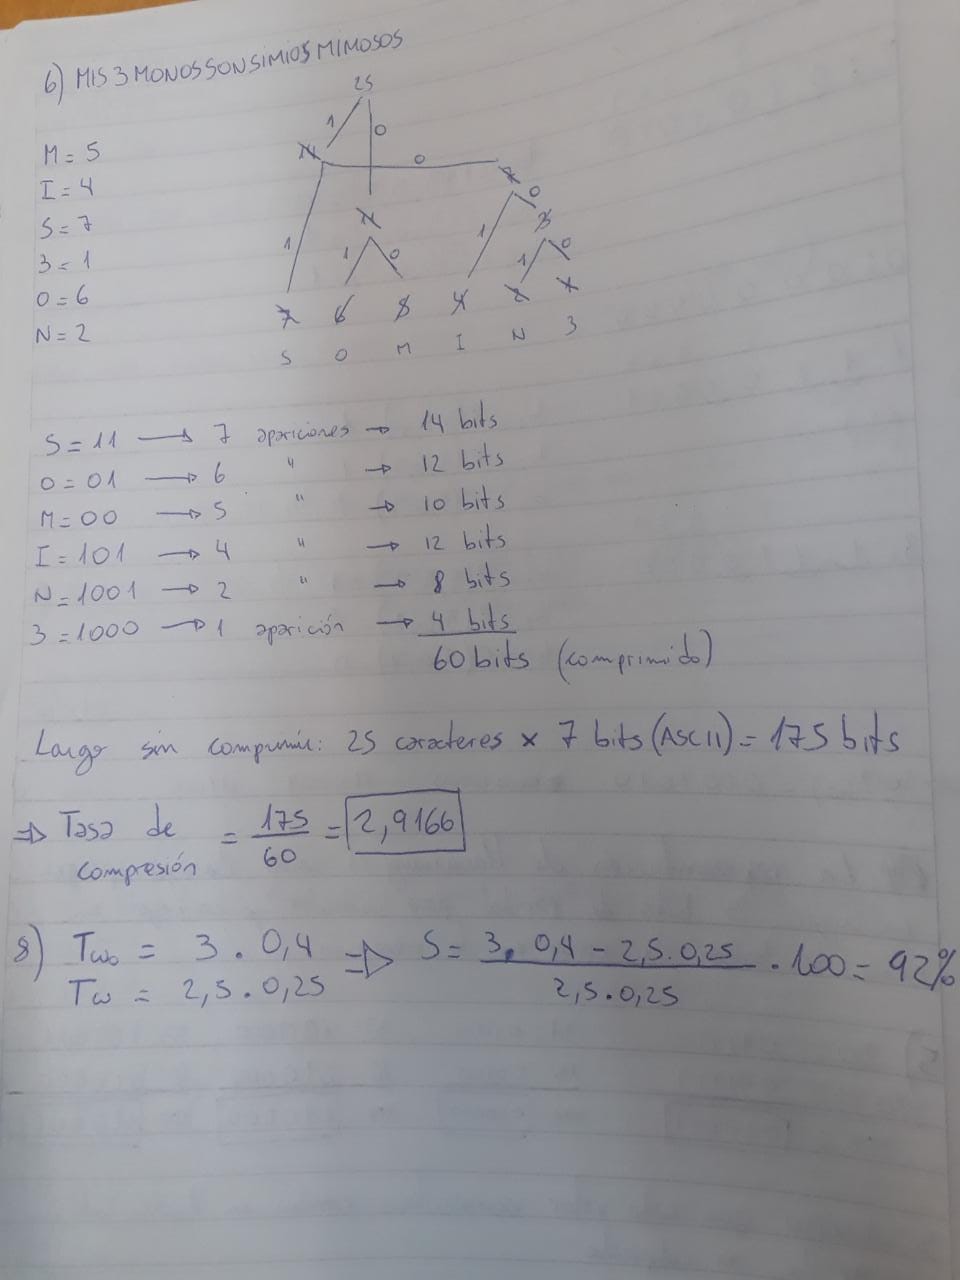 6) MIS3MONOSSONSIMIOSMIMOSOS
25
M = 5
I = 4
S = 7
3 = 1
O = 6
N = 2
1 0
0
0
1 1 0 1 1 0 0
7 6 5 4 2 1
S O M I N 3
S = 11 → 7 apariciones → 14 bits
O = 01 → 6 " → 12 bits
M = 00 → 5 " → 10 bits
I = 101 → 4 " → 12 bits
N = 1001 → 2 " → 8 bits
3 = 1000 → 1 aparición → 4 bits
60 bits (comprimido)
Largo sin comprimir: 25 caracteres × 7 bits (ASCII) = 175 bits
⇒ Tasa de compresión = 175/60 = 2,9166
8) Tωo = 3 . 0,4 ⇒ S = 3. 0,4 - 2,5.0,25 / 2,5.0,25 . 100 = 92%
Tω = 2,5.0,25